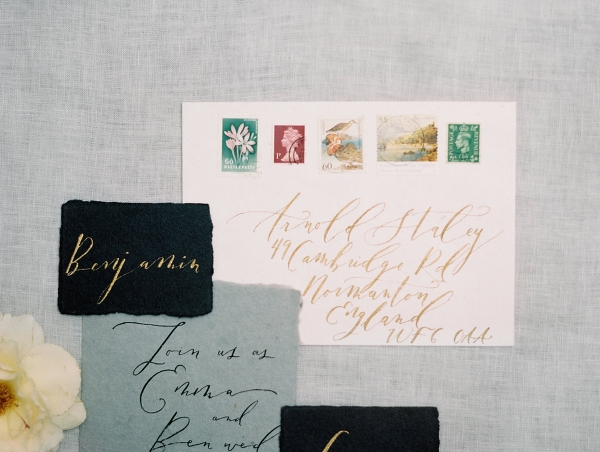 60
1P
60
Arnold Staley
49 Cambridge Rd
Normanton
England
WF6
Benjamin
Join us as
Emma
and
Ben wed